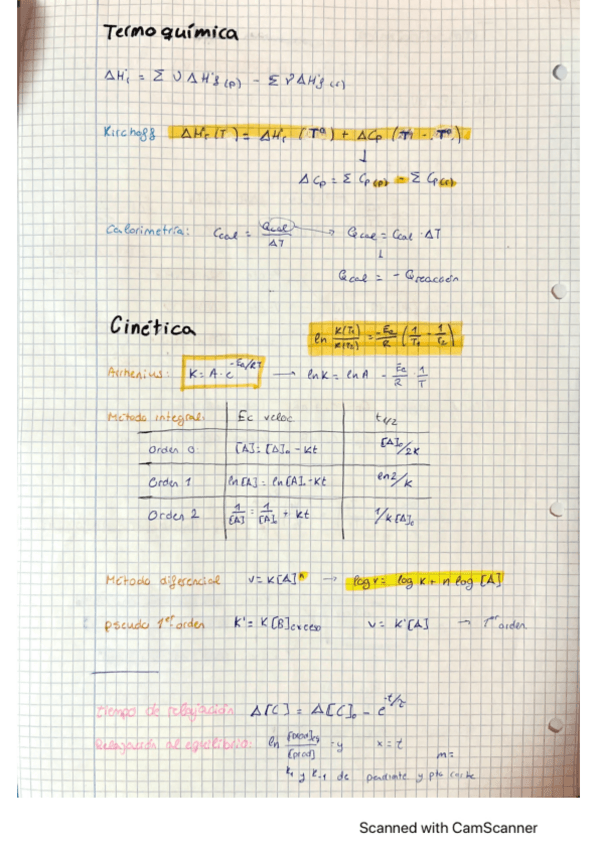 Termoquímica
ΔH°r = Σ ν ΔH°f (p) - Σ ν ΔH°f (r)
Kirchoff ΔH°r (T) = ΔH°r (Tª) + ΔCp (T - Tª)
↓
ΔCp = Σ Cp(p) - Σ Cp(r)
Calorimetría: Ccal = Qcal/ΔT → Qcal = Ccal · ΔT
↓
Qcal = - Qreacción
Cinética
ln K(T1)/K(T2) = -Ea/R (1/T1 - 1/T2)
Arrhenius: K = A · e^-Ea/RT → lnK = lnA - Ea/R · 1/T
Método integral: Ec veloc. t1/2
Orden 0 [A] = [A]o - Kt [A]o/2K
Orden 1 ln[A] = ln[A]o - Kt ln2/K
Orden 2 1/[A] = 1/[A]o + Kt 1/K[A]o
Método diferencial v = K[A]^n → log v = log K + n log [A]
pseudo 1er orden K' = K[B]exceso v = K'[A] → 1er orden
tiempo de relajación Δ[C] = Δ[C]o - e^-t/τ
Relajación al equilibrio: ln [prod]eq/[prod] - y x = t
m =
K1 y K-1 de pendiente y pto corte
Scanned with CamScanner